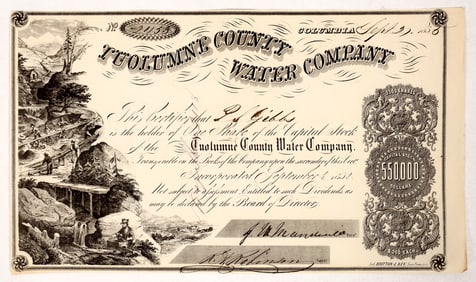 No. 2039
COLUMBIA Sept 29, 1856
TUOLUMNE COUNTY
WATER COMPANY
This Certifies that P J Gibbs
is the holder of One Share of the Capital Stock
of the Tuolumne County Water Company.
Transferable on the Books of the Company upon the surrender of this Scrip
Incorporated September 1852.
Not subject to assessment. Entitled to such Dividends as
may be declared by the Board of Directors
$550000
DOLLARS
EACH
Lith. BRITTON & REY, San Francisco